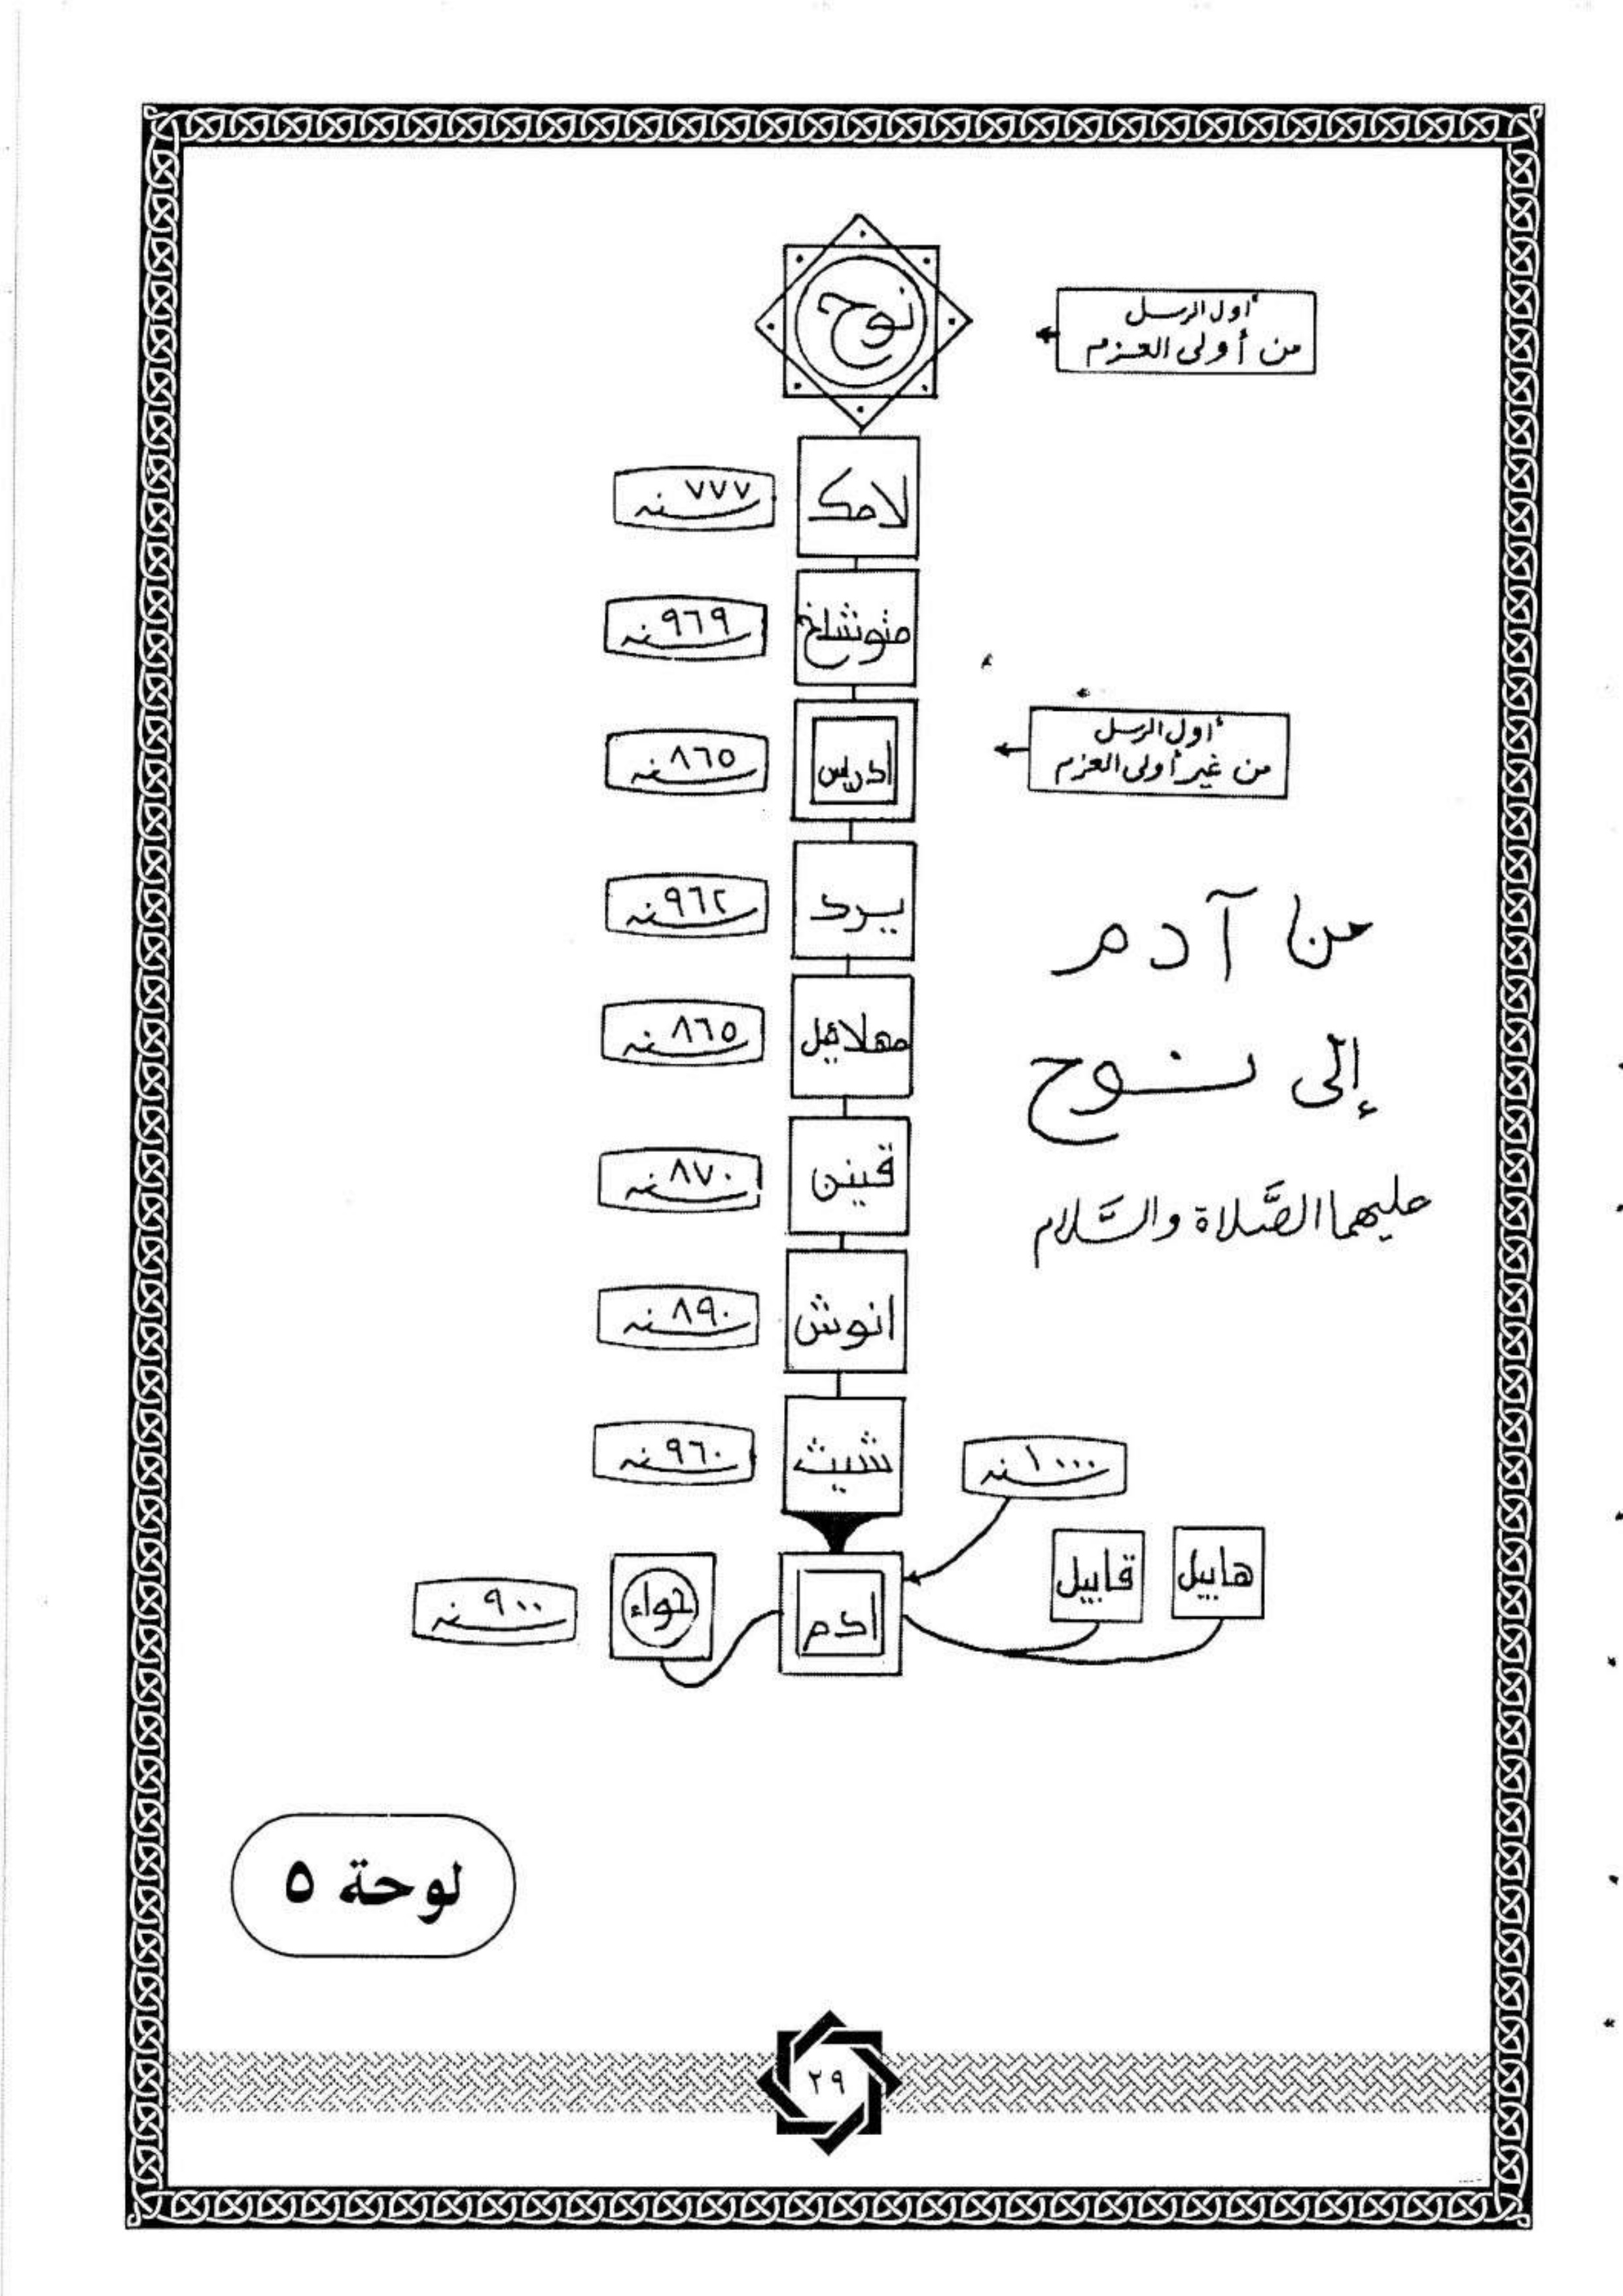 نوح
أول الرسل
من أولى العزم
لامك
٧٧٧ سنه
متوشلخ
٩٦٩ سنه
أول الرسل
من غير أولى العزم
ادريس
٨٦٥ سنه
يرد
٩٦٢ سنه
من آدم
إلى نوح
عليهما الصَّلاة والسَّلام
مهلائيل
٨٦٥ سنه
قينن
٨٧٠ سنه
انوش
٨٩٠ سنه
شيث
٩٦٠ سنه
١٠٠٠ سنه
هابيل
قابيل
ادم
حواء
٩٠٠ سنه
لوحة ٥
٢٩